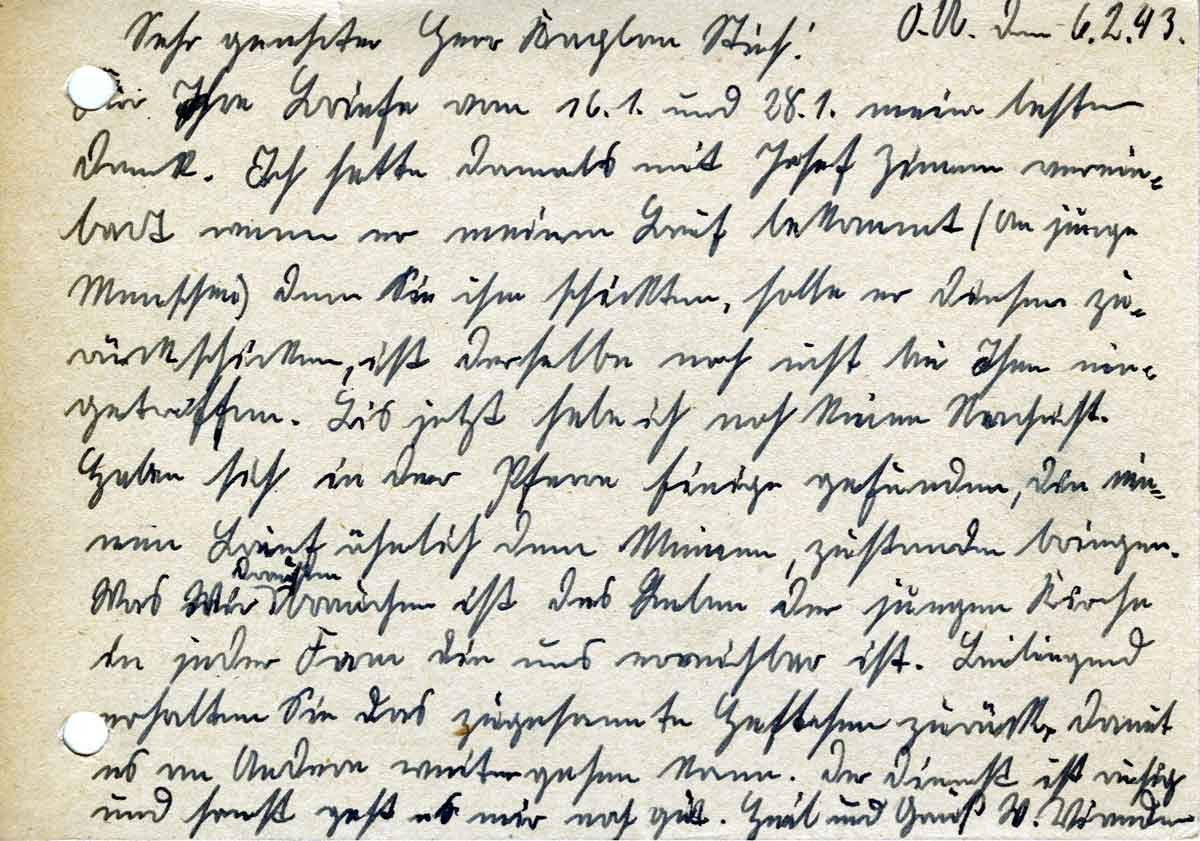 Sehr geehrter Herr Kaplan! O.U. den 6.2.43.
Für Ihre Briefe vom 16.1. und 28.1. mein besten
Dank. Ich hatte damals mit Josef verein-
bart wenn er meinen Brief bekommt (An junge
Menschen) den Sie ihm schickten, solle er diesen zu-
rückschicken, ist derselbe noch nicht bei Ihnen ein-
getroffen. Bis jetzt habe ich noch keine Nachricht.
Haben sich in der Pfarre einige gefunden, die ein-
nen Brief ähnlich dem Meinen, zustande bringen.
draußen
Was Wir brauchen ist das Leben der jungen Kirche
in jeder Form die uns erreichbar ist. Beiliegend
erhalten Sie das zugesannte Heftchen zurück, damit
es an Andere weitergehen kann. Der Dienst ist ruhig
und sonst geht es mir noch gut. Heil und Gruß W.